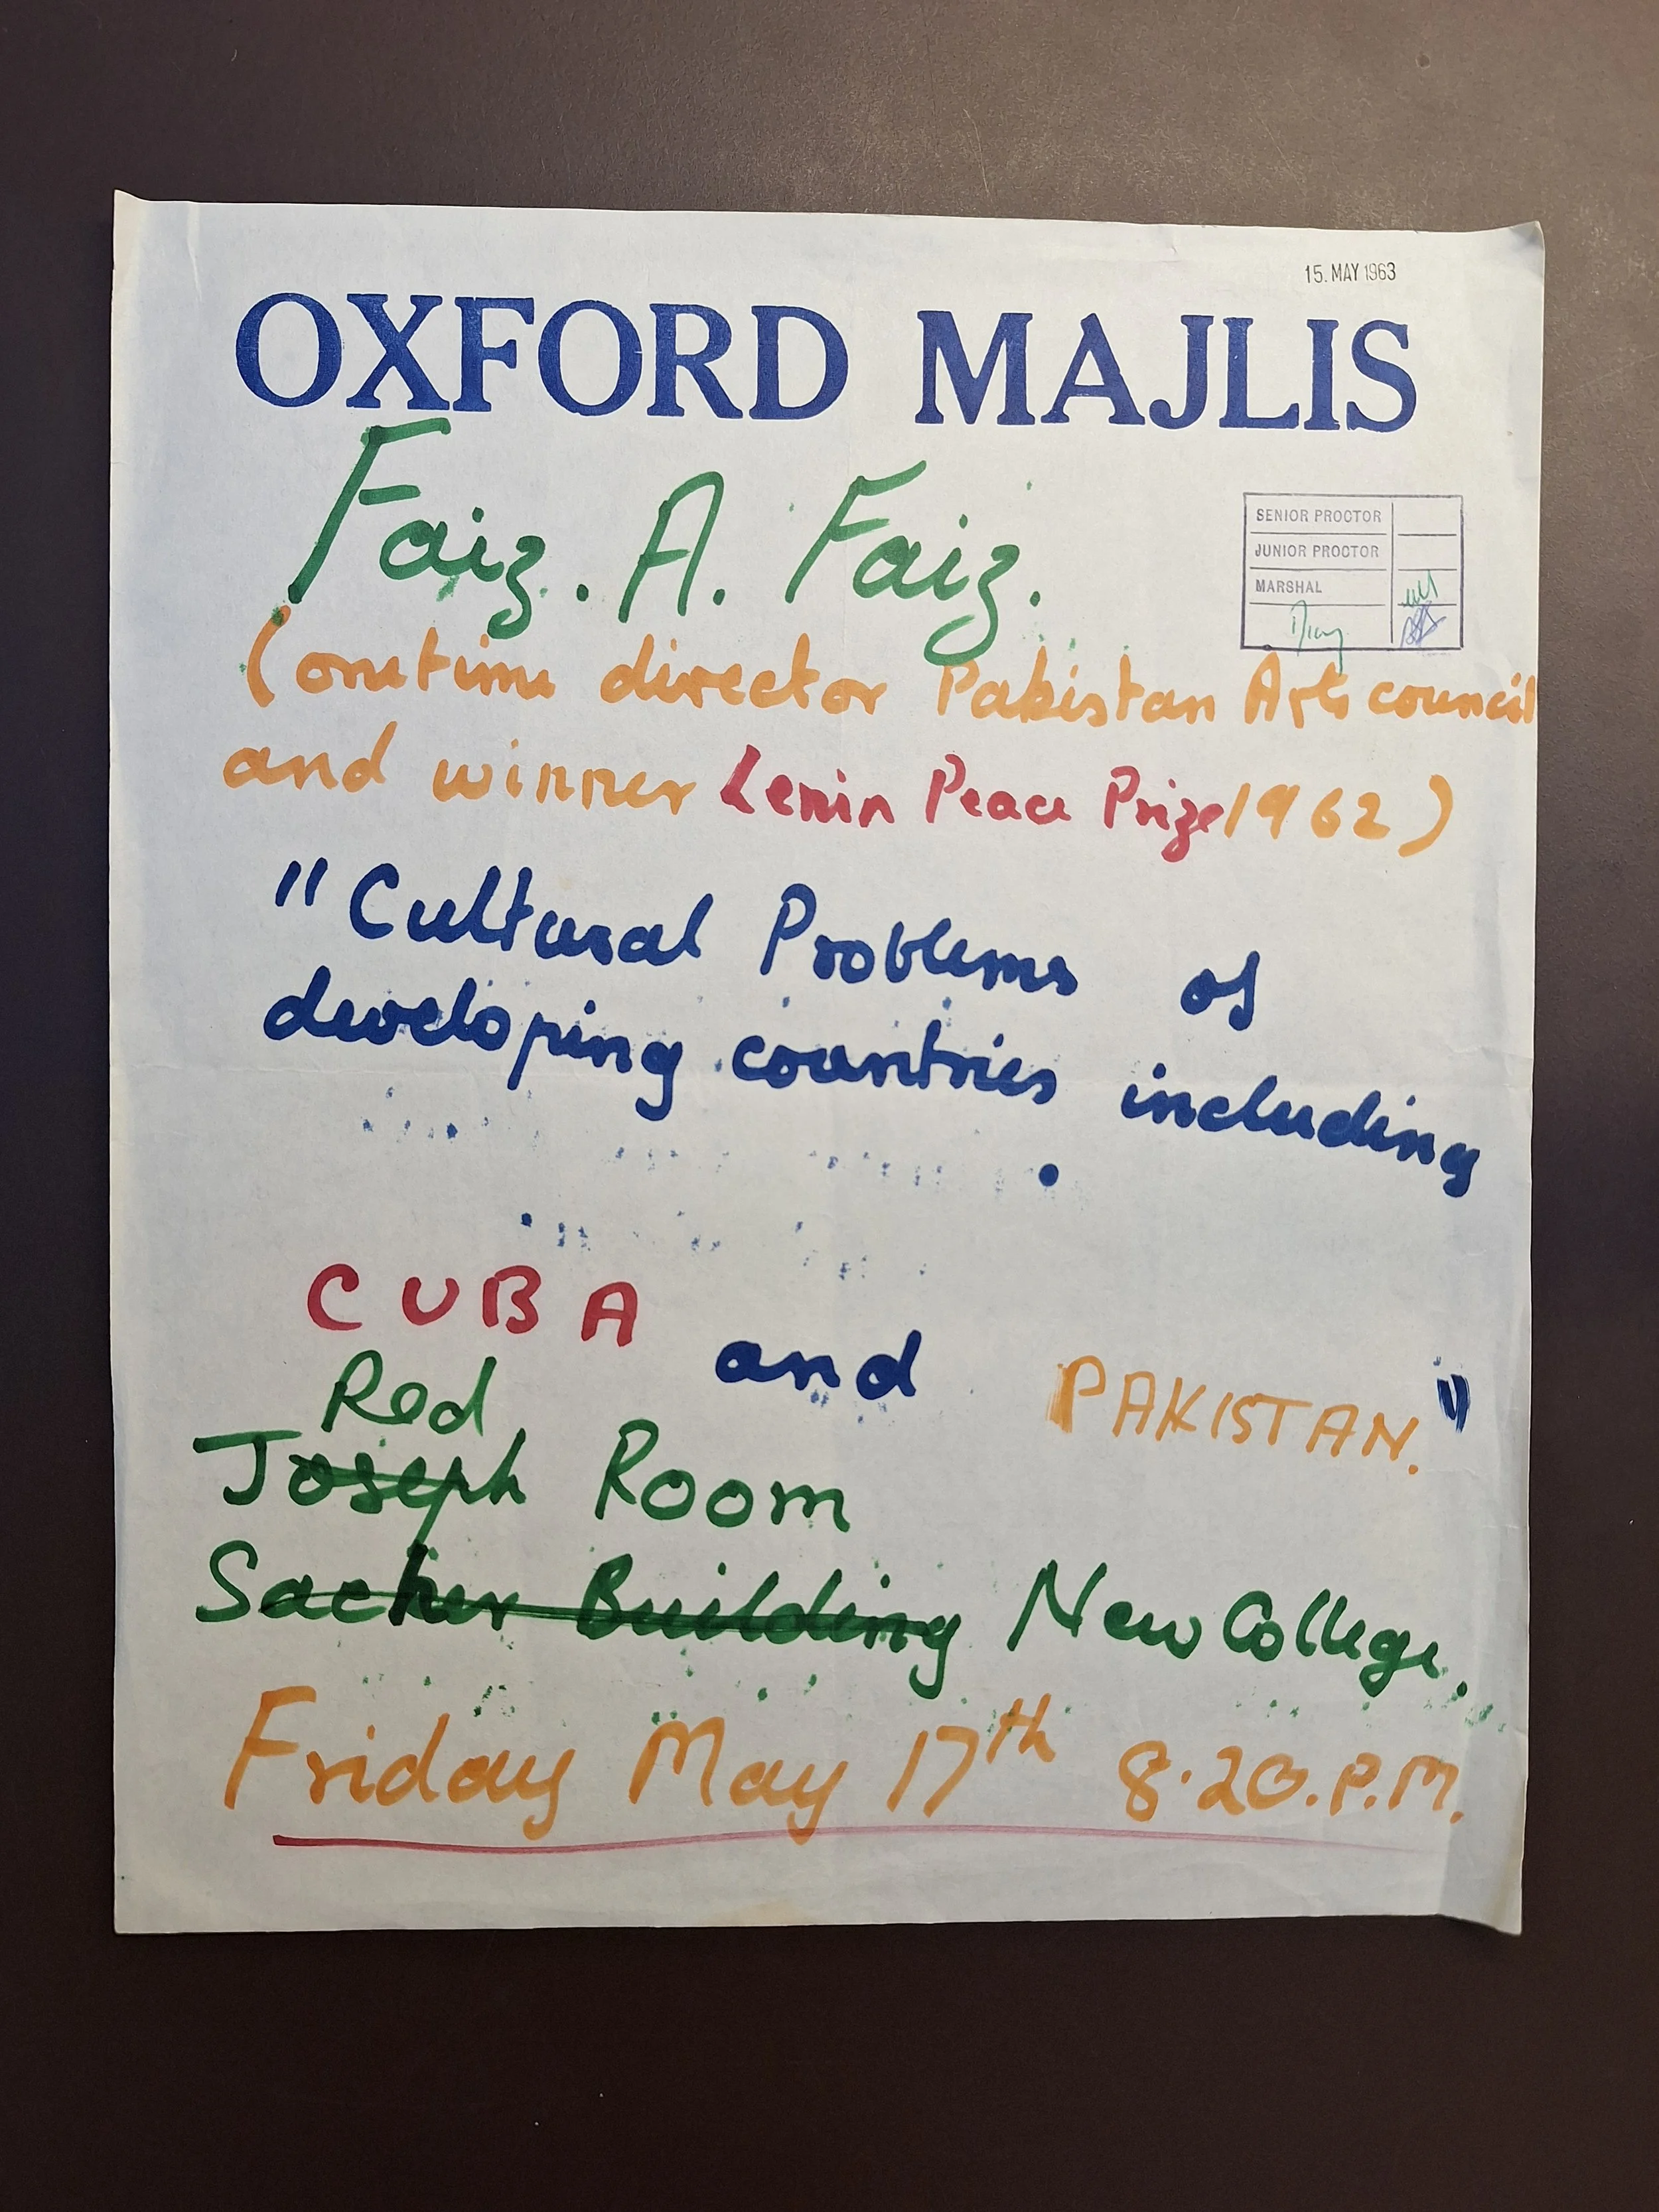 15. MAY 1963
OXFORD MAJLIS
Faiz. A. Faiz.
SENIOR PROCTOR
JUNIOR PROCTOR
MARSHAL
(onetime director Pakistan Arts council
and winner Lenin Peace Prize 1962)
"Cultural Problems of
developing countries including
CUBA and PAKISTAN."
Red
Joseph Room
Sacher Building New College.
Friday May 17th 8.20.P.M.